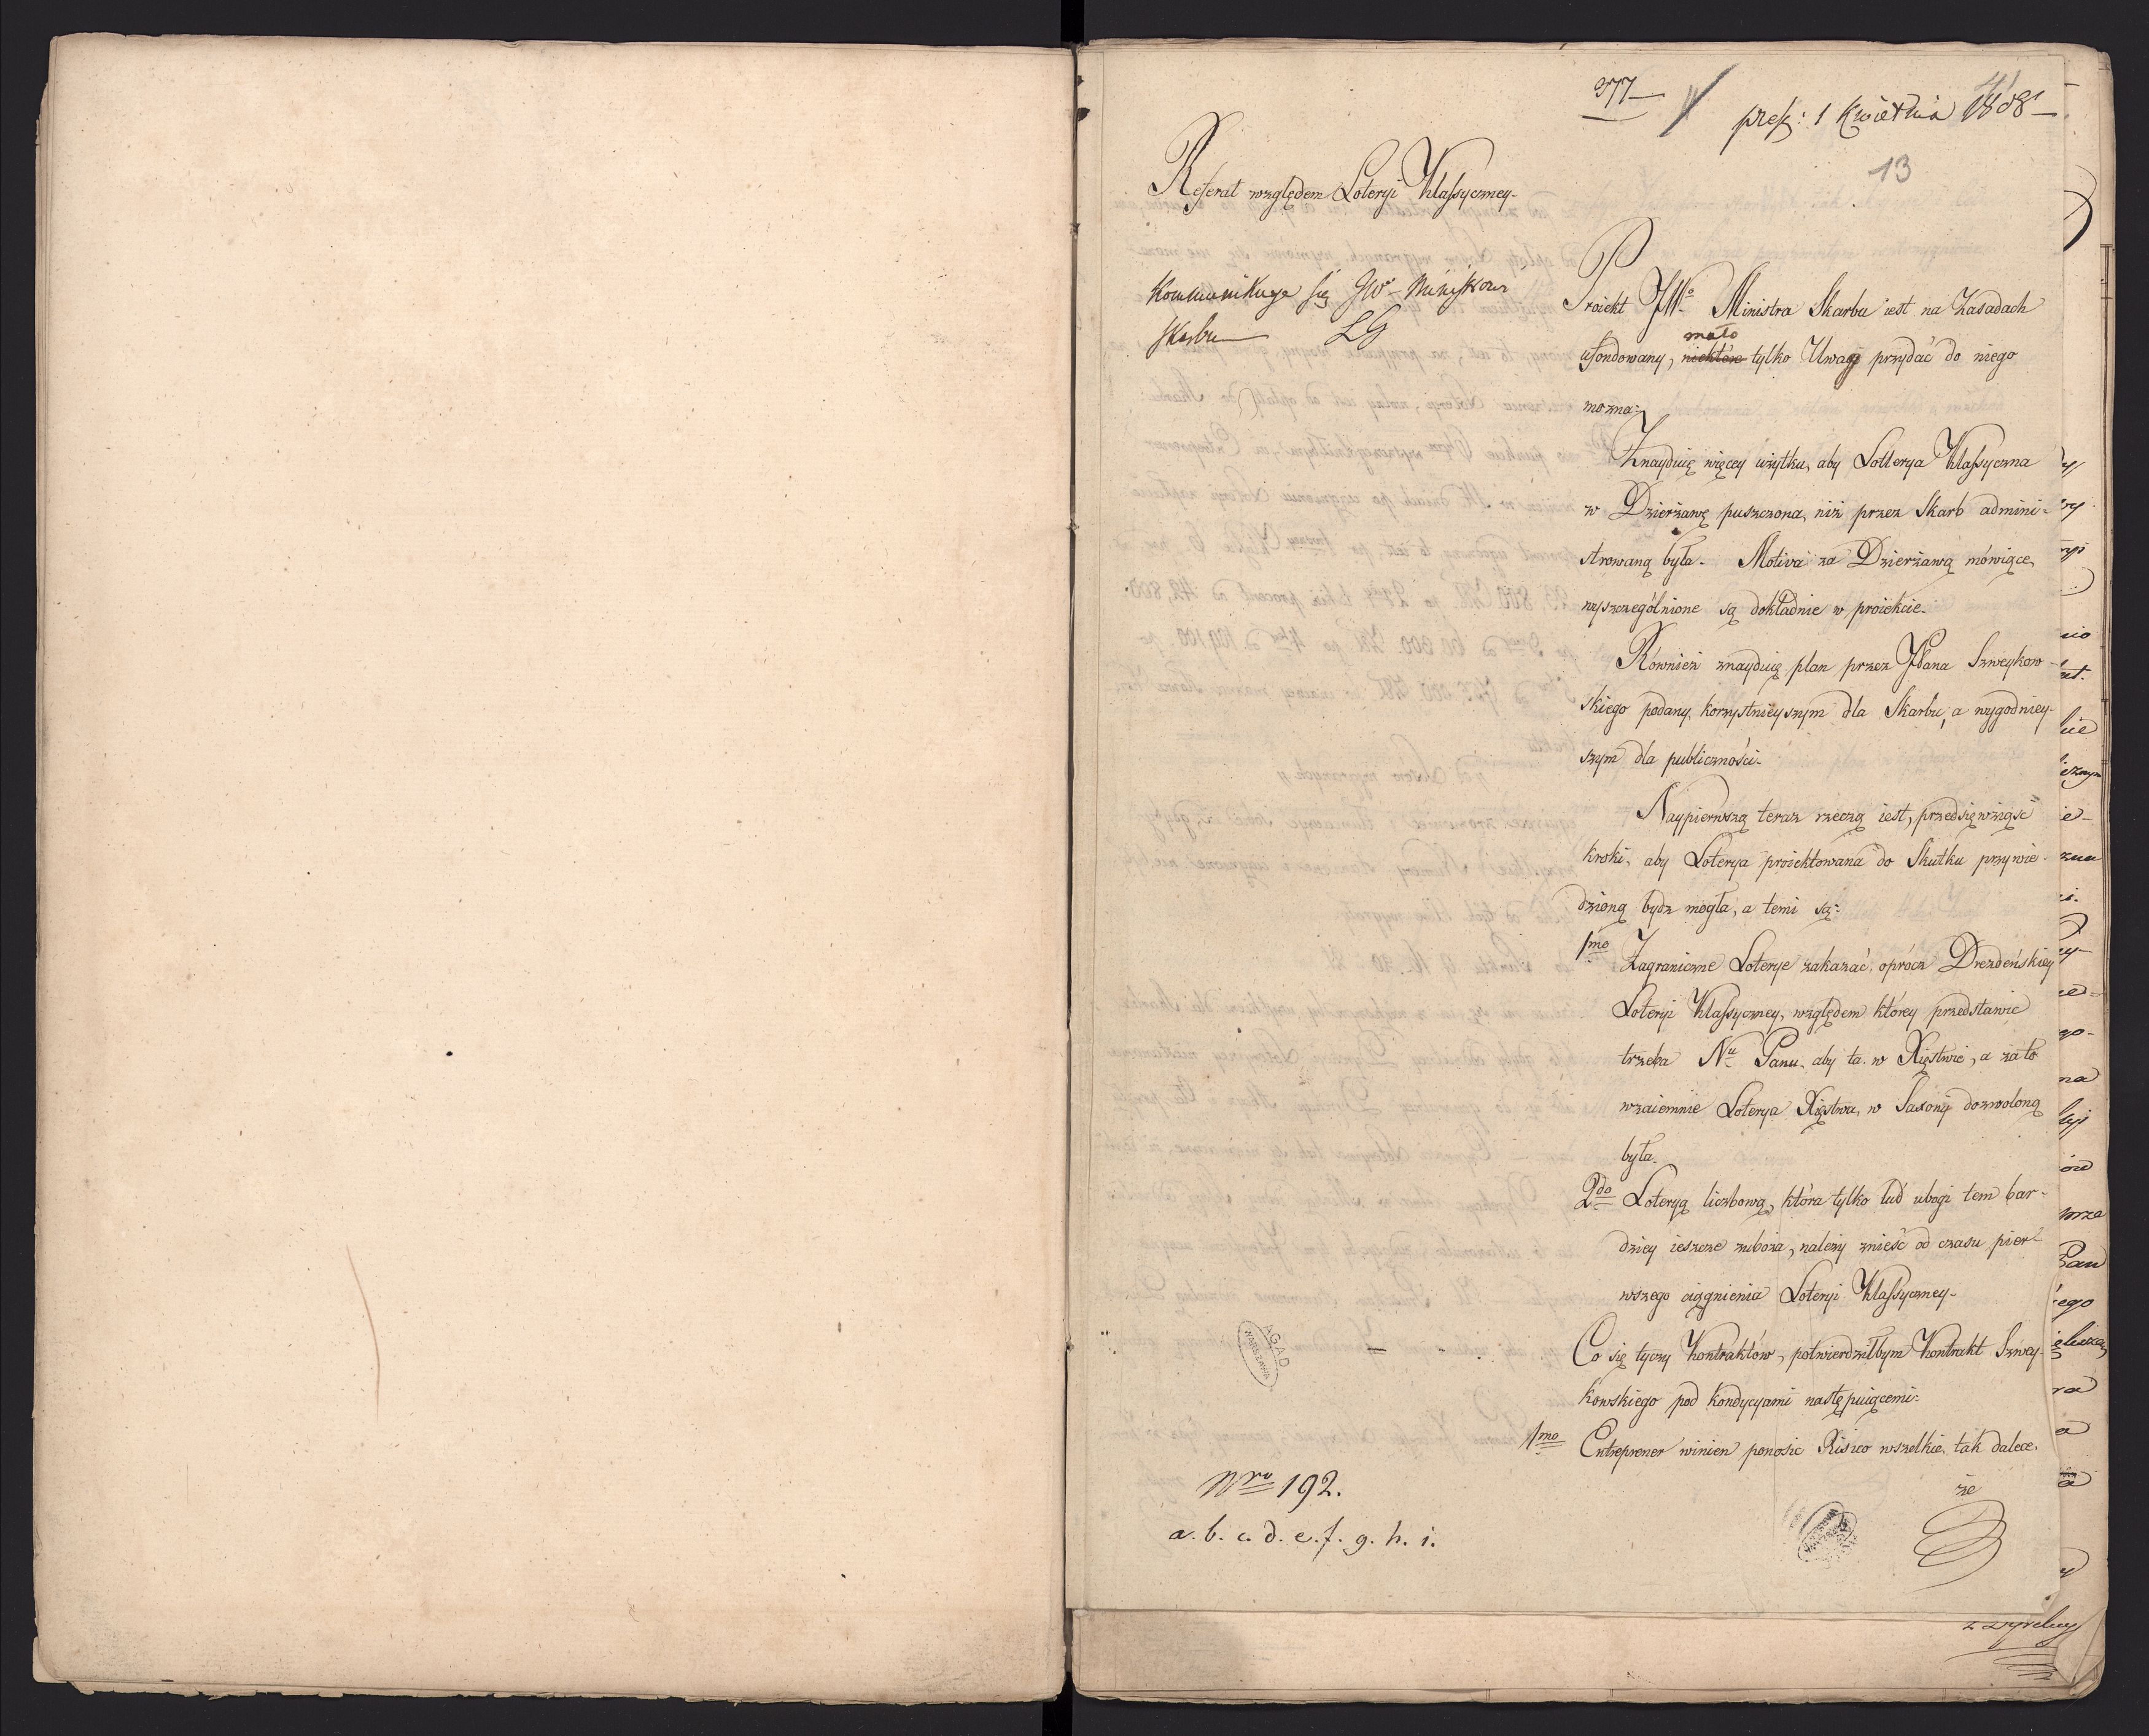 377
41
pręs: 1 Kwietnia 1808
13
Referat względem Loteryi Klassyczney
Kommunikuye się JW Ministrowi
Skarbu LG
Proiekt JW⁰ Ministra Skarbu iest na Zasadach
mało
ufondowany, niektóre tylko Uwagi przydać do niego
można.
Znayduię więcey użytku, aby Lotterya Klassyczna
w Dzierżawę puszczona, niż przez Skarb admini-
strowaną była. Motiva za Dzierżawą mówiące,
wyszczególnione są dokładnie w proiekcie.
Również znayduię plan przez JPana Szweykow-
skiego podany, korzystnieyszym dla Skarbu, a wygodniey-
szym dla publiczności.
Naypierwszą teraz rzeczą iest, przedsięwziąść
kroki, aby Loterya proiektowana do Skutku przywie-
dzioną bydz mogła, a temi są:
1mo Zagraniczne Loterye zakazać, oprócz Drezdeńskiey
Loteryi Klassyczney, względem którey przedstawic
trzeba Nu Panu, aby ta w Xięstwie, a za to
wzaiemnie Loterya Xięstwa, w Saxonÿ dozwoloną
była.
2do Loteryą liczbową, która tylko lud ubogi tem bar-
dziey ieszcze zuboża, należy znieść od czasu pier-
wszego ciągnienia Loteryi Klassyczney.
Co się tyczy Kontraktów, potwierdziłbym Kontrakt Szwey-
kowskiego pod kondycyami następuiącemi:
1mo Entreprener winien ponosic Risico wszelkie, tak dalece,
że
Nro 192.
a. b. c. d. e. f. g. h. i.
AGAD
WARSZAWA